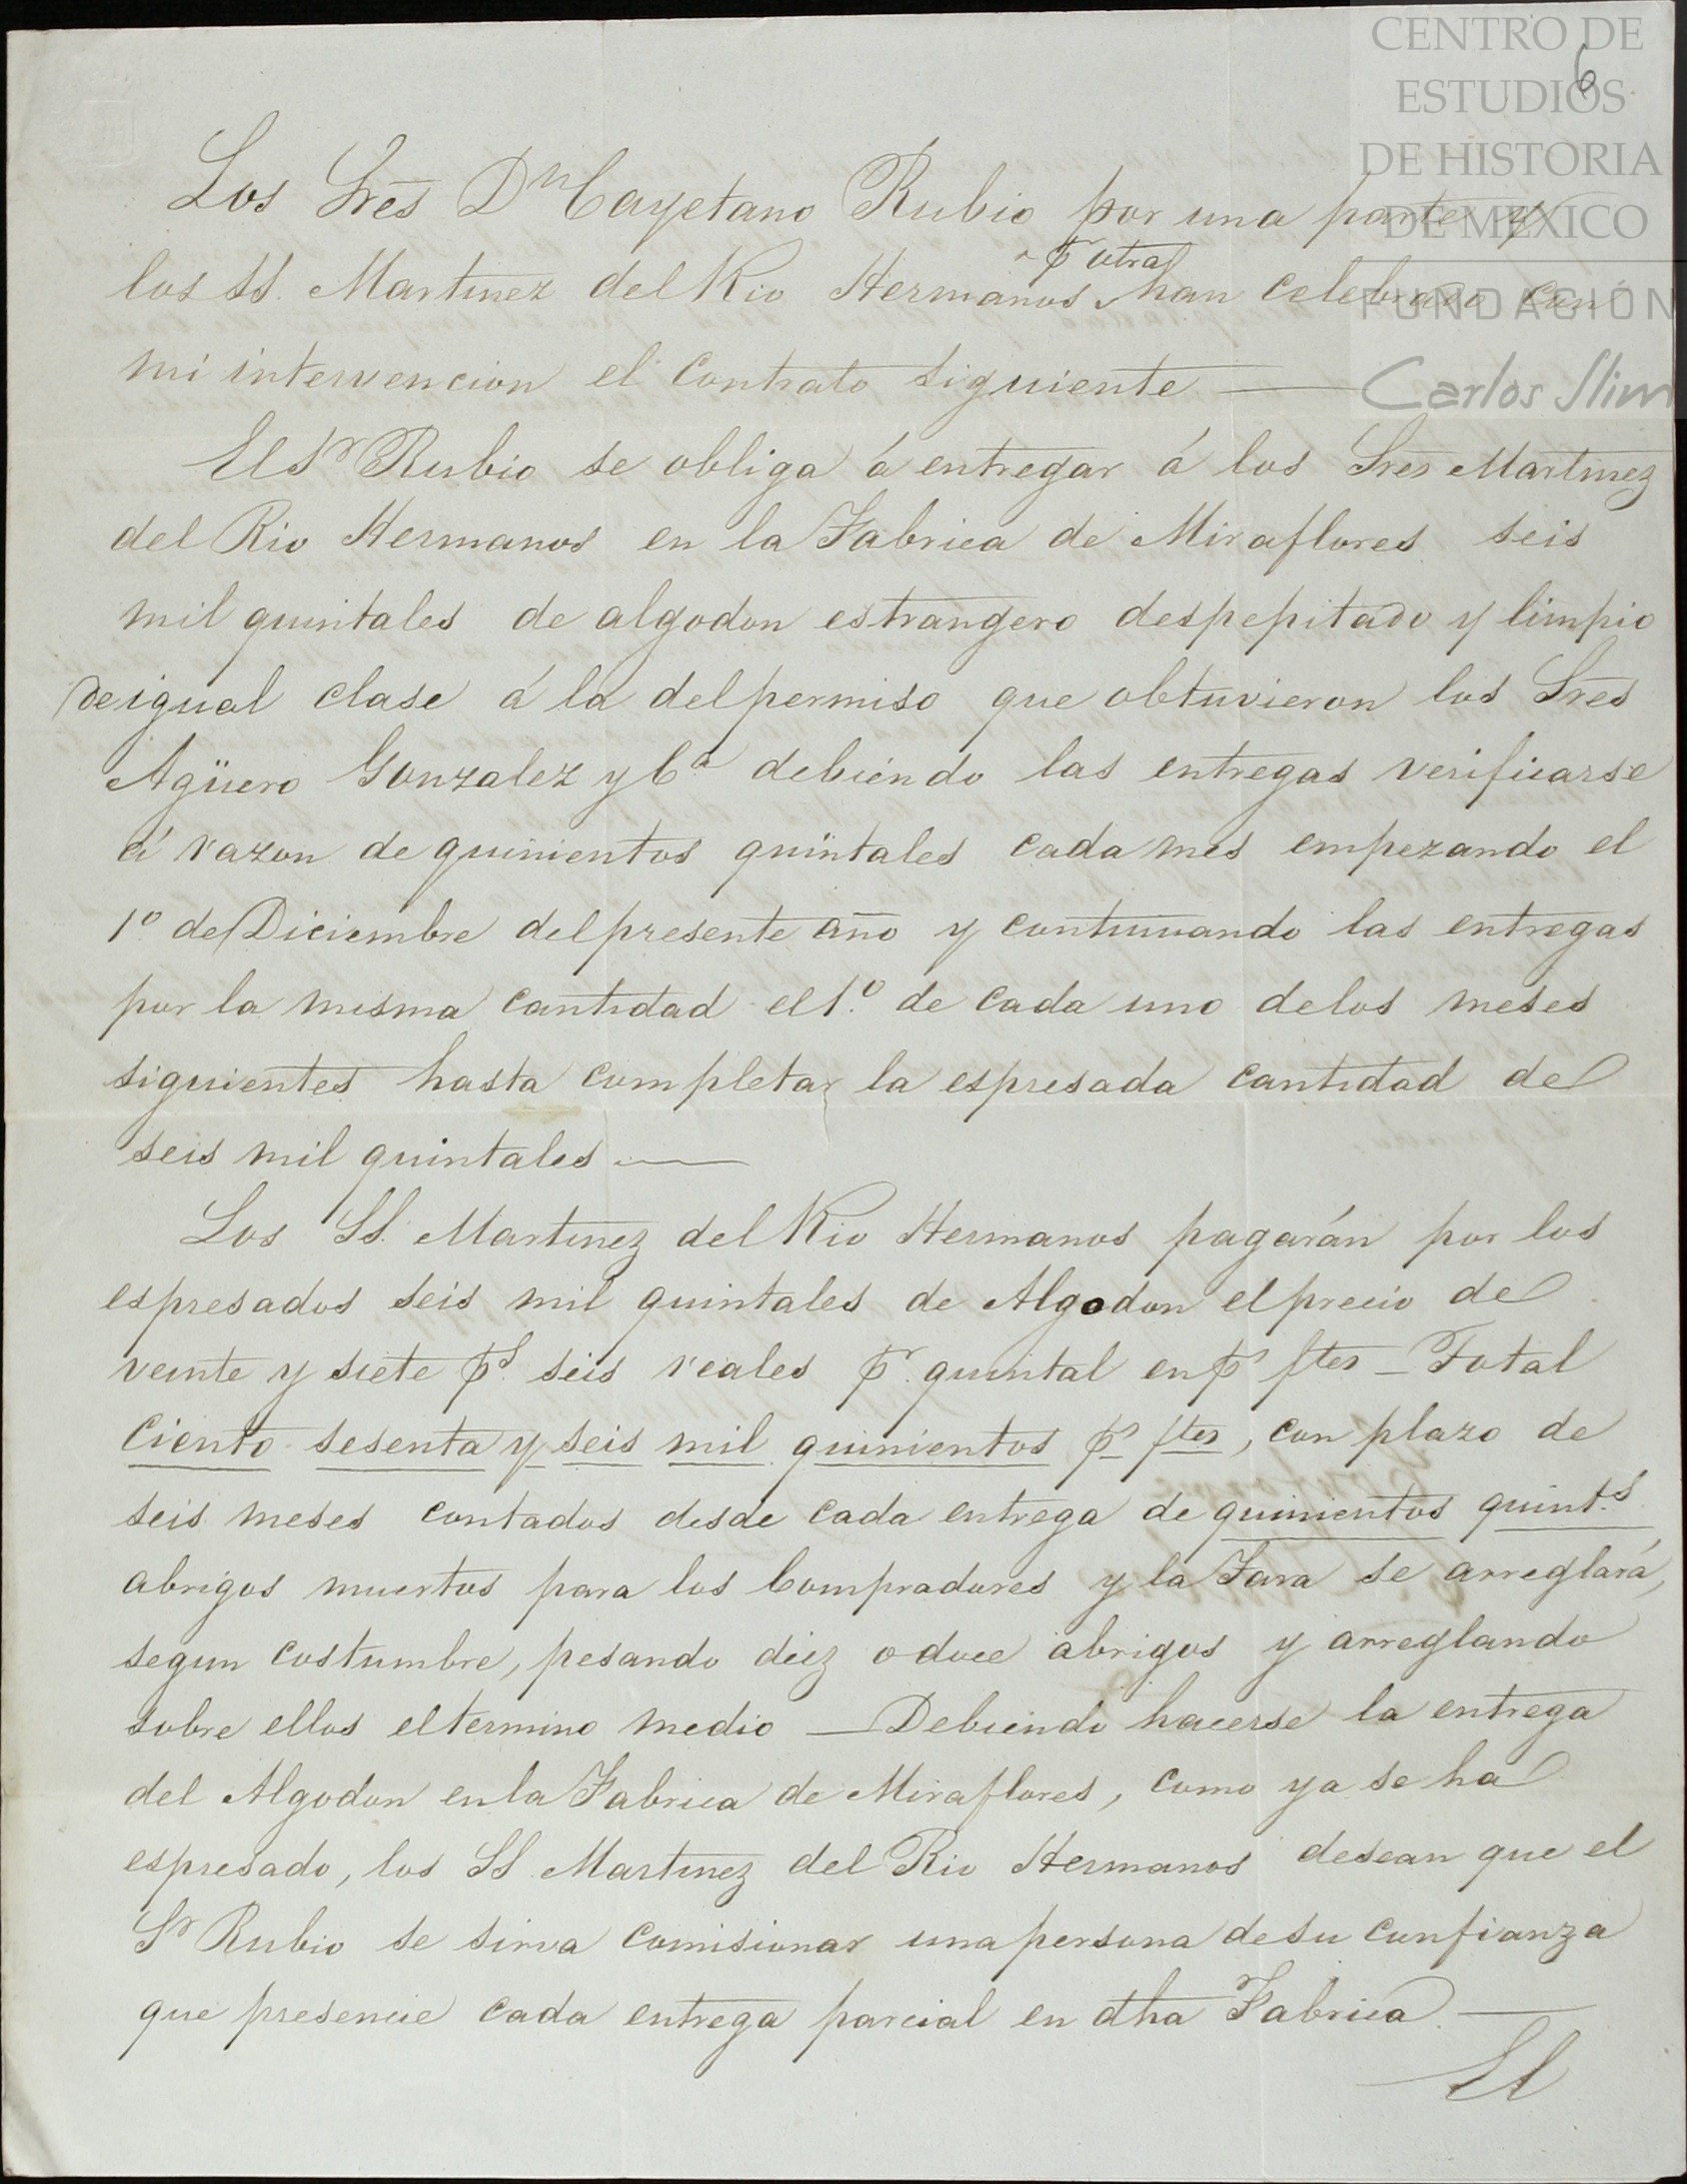 CENTRO DE
ESTUDIOS
DE HISTORIA
DE MEXICO
FUNDACIÓN
Carlos Slim
6
Los Sres Dn Cayetano Rubio por una parte y
los SS. Martinez del Rio Hermanos p otra han celebrado con
mi intervencion el contrato siguiente —
El Sr Rubio se obliga á entregar á los Sres Martinez
del Rio Hermanos en la Fabrica de Miraflores seis
mil quintales de algodon estrangero despepitado y limpio
de igual clase á la del permiso que obtuvieron los Sres
Agüero Gonzalez y Ca debiendo las entregas verificarse
á razon de quinientos quintales cada mes empezando el
1o de Diciembre del presente año y continuando las entregas
por la misma cantidad el 1o. de cada uno de los meses
siguientes hasta completar la espresada cantidad de
seis mil quintales —
Los SS. Martinez del Rio Hermanos pagarán por los
espresados seis mil quintales de Algodon el precio de
veinte y siete ps. seis reales pr. quintal en ps ftes — Total
Ciento sesenta y seis mil quinientos ps ftes, con plazo de
seis meses contados desde cada entrega de quinientos quint.s
abrigos muertos para los Compradores y la Tara se arreglará,
segun costumbre, pesando diez o doce abrigos y arreglando
sobre ellos el termino medio — Debiendo hacerse la entrega
del Algodon en la Fabrica de Miraflores, como ya se ha
espresado, los SS Martinez del Rio Hermanos desean que el
Sr Rubio se sirva comisionar una persona de su confianza
que presencie cada entrega parcial en dha Fabrica. —
El